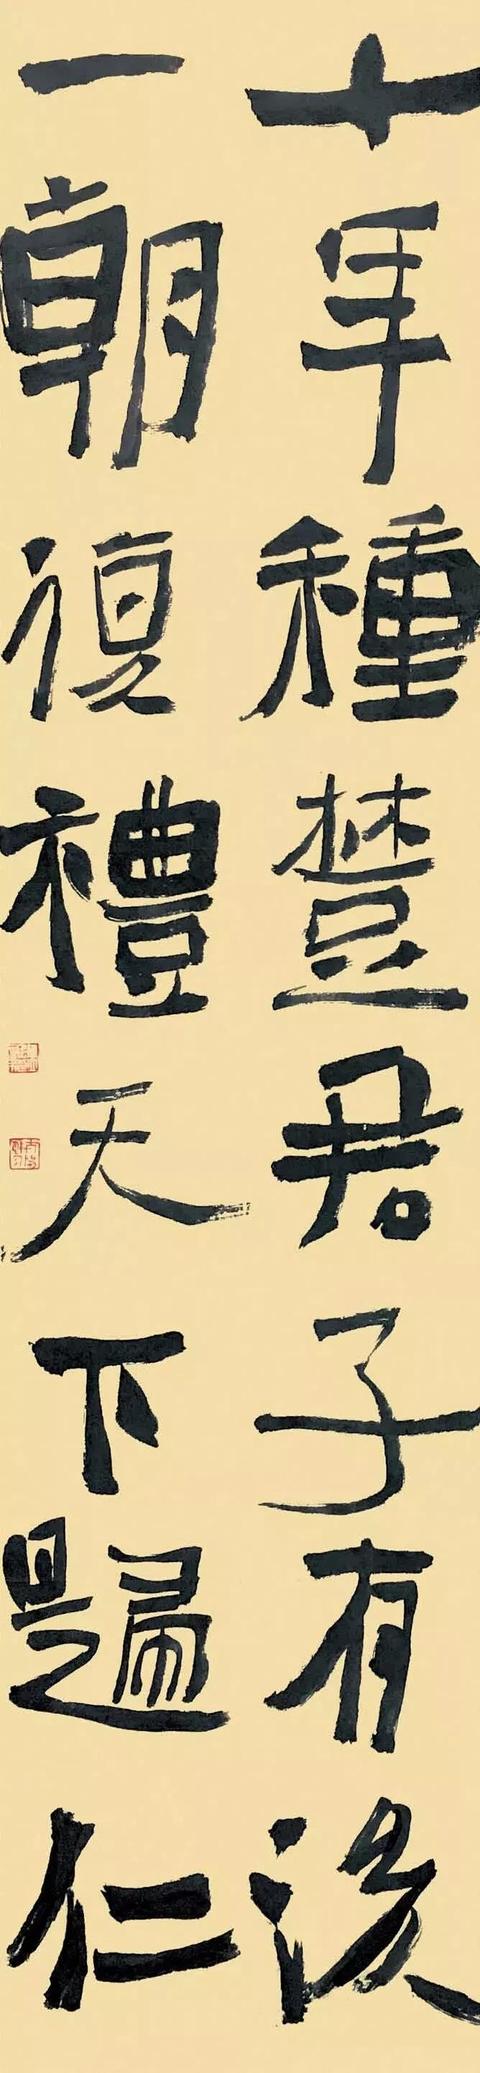 十年種君子有後
一朝復禮天下歸仁